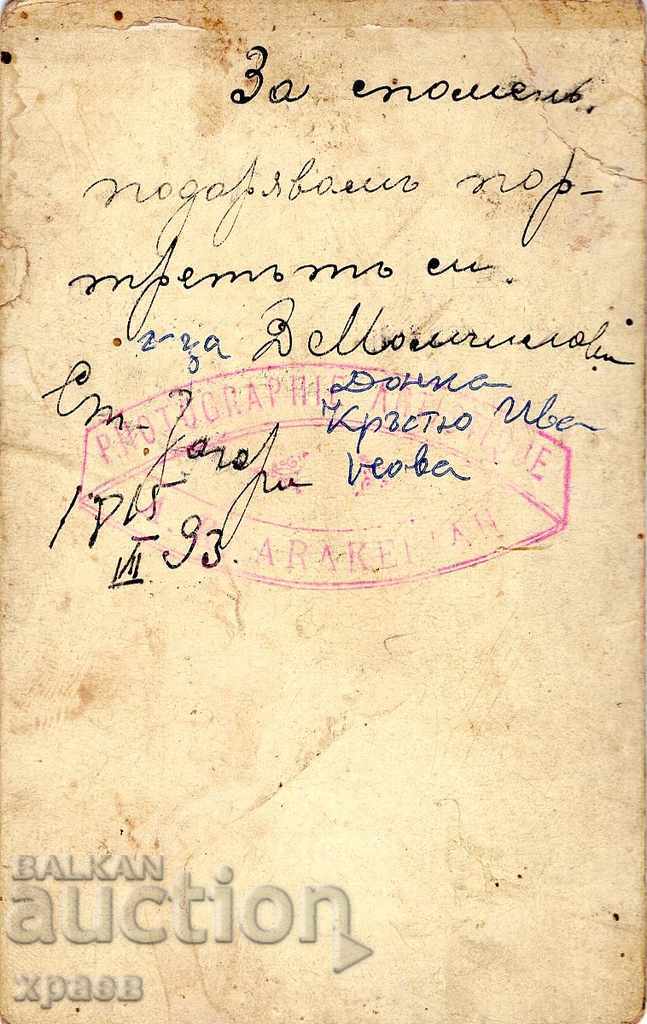 За споменъ.
подарявамъ пор-
третътъ си.
г-за Д Момчилови
Донка
Кръстю Ива
нова
Ст. Загора
18 15/III 93.
PHOTOGRAPHIE
ARAKELIAN
BALKAN
auction
храев